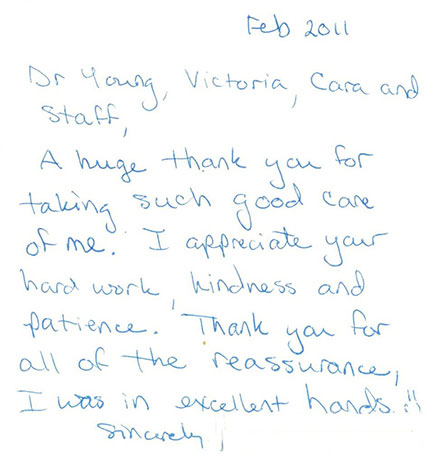 Feb 2011
Dr Young, Victoria, Cara and
Staff,
A huge thank you for
taking such good care
of me. I appreciate your
hard work, kindness and
patience. Thank you for
all of the reassurance,
I was in excellent hands !!
Sincerely,